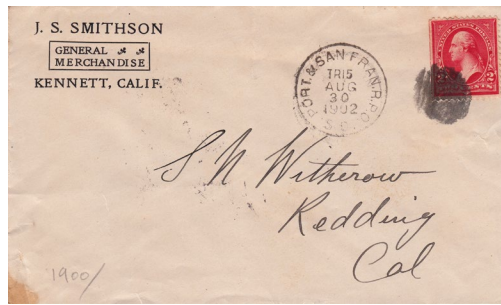 J. S. SMITHSON
GENERAL
MERCHANDISE
KENNETT, CALIF.
PORT. & SAN FRAN. R.P.O.
TR15
AUG
30
1902
S.D.
S. N Witherow
Redding
Cal
1900/